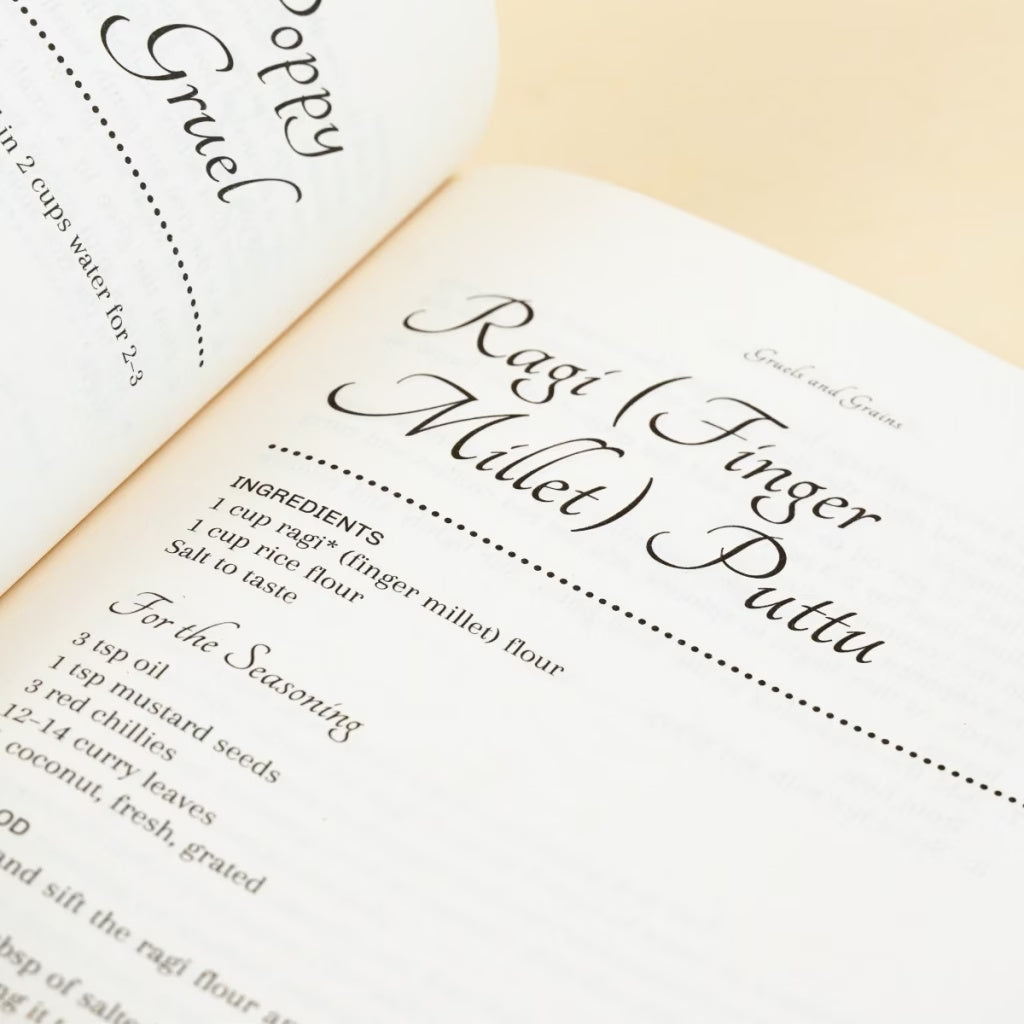 Poppy
Gruel
in 2 cups water for 2–3
Gruels and Grains
Ragi (Finger
Millet) Puttu
INGREDIENTS
1 cup ragi* (finger millet) flour
1 cup rice flour
Salt to taste
For the Seasoning
3 tsp oil
1 tsp mustard seeds
3 red chillies
12–14 curry leaves
coconut, fresh, grated
and sift the ragi flour
of
it